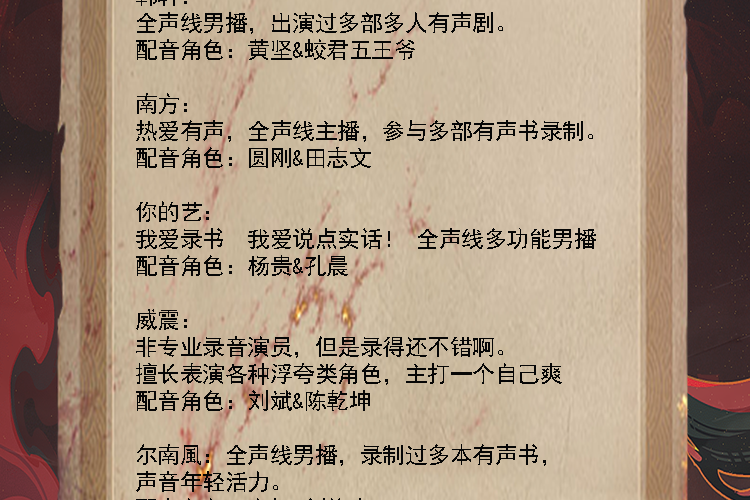 全声线男播，出演过多部多人有声剧。
配音角色：黄坚&蛟君五王爷
南方：
热爱有声，全声线主播，参与多部有声书录制。
配音角色：圆刚&田志文
你的艺：
我爱录书　我爱说点实话！　全声线多功能男播
配音角色：杨贵&孔晨
威震：
非专业录音演员，但是录得还不错啊。
擅长表演各种浮夸类角色，主打一个自己爽
配音角色：刘斌&陈乾坤
尔南風：全声线男播，录制过多本有声书，
声音年轻活力。